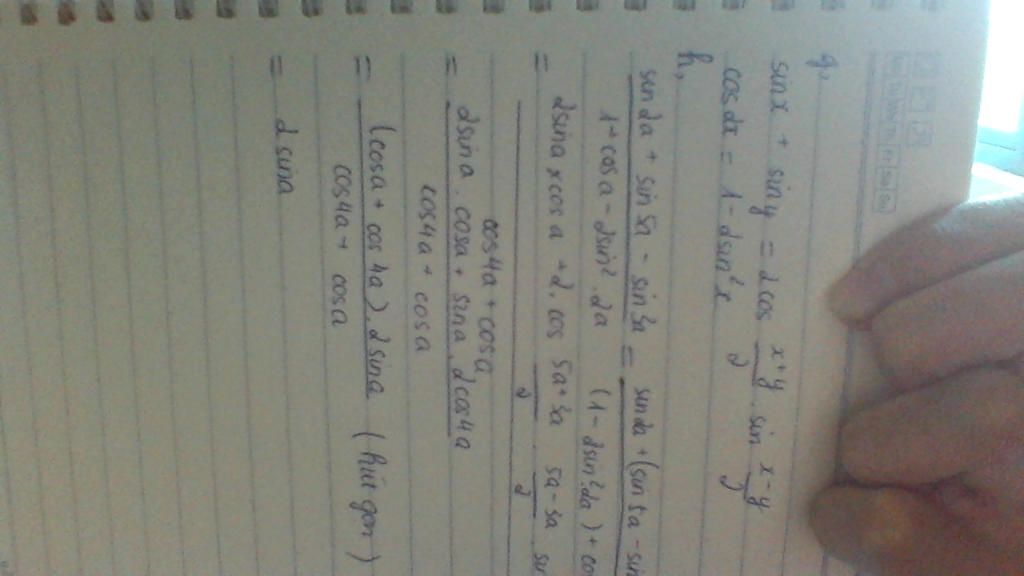 g,
sinx + siny = 2 cos x+y/2 . sin x-y/2
cos2x = 1 - 2sin²x
h,
sin2a + sin5a - sin3a / 1+cosa - 2sin².2a = sin2a + (sin5a - sin / (1-2sin²2a) + co
= 2sina × cosa + 2.cos 5a+3a/2 . 5a-3a/2 / cos4a + cosa
= 2sina . cosa + sina . 2cos4a / cos4a + cosa
= (cosa + cos4a) . 2sina / cos4a + cosa (rút gọn)
= 2sina